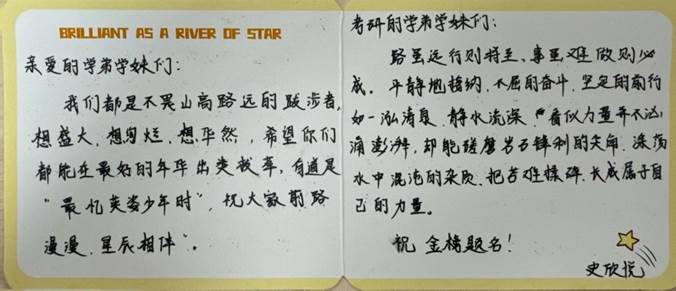 BRILLIANT AS A RIVER OF STAR
亲爱的学弟学妹们:
我们都是不畏山高路远的跋涉者,
想盛大,想绚烂,想华然,希望你们
都能在最好的年华出类拔萃,有道是
“最忆英姿少年时”,祝大家前路
漫漫,星辰相伴。
考研的学弟学妹们:
路虽远行则将至,事虽难做则必
成。平静地接纳,不屈的奋斗,坚定的前行
如一泓清泉,静水流深,看似力量并不汹
涌澎湃,却能磋磨岩石锋利的尖角,涤荡
水中混沌的杂质,把苦难揉碎,长成属于自
己的力量。
祝 金榜题名!
史欣悦